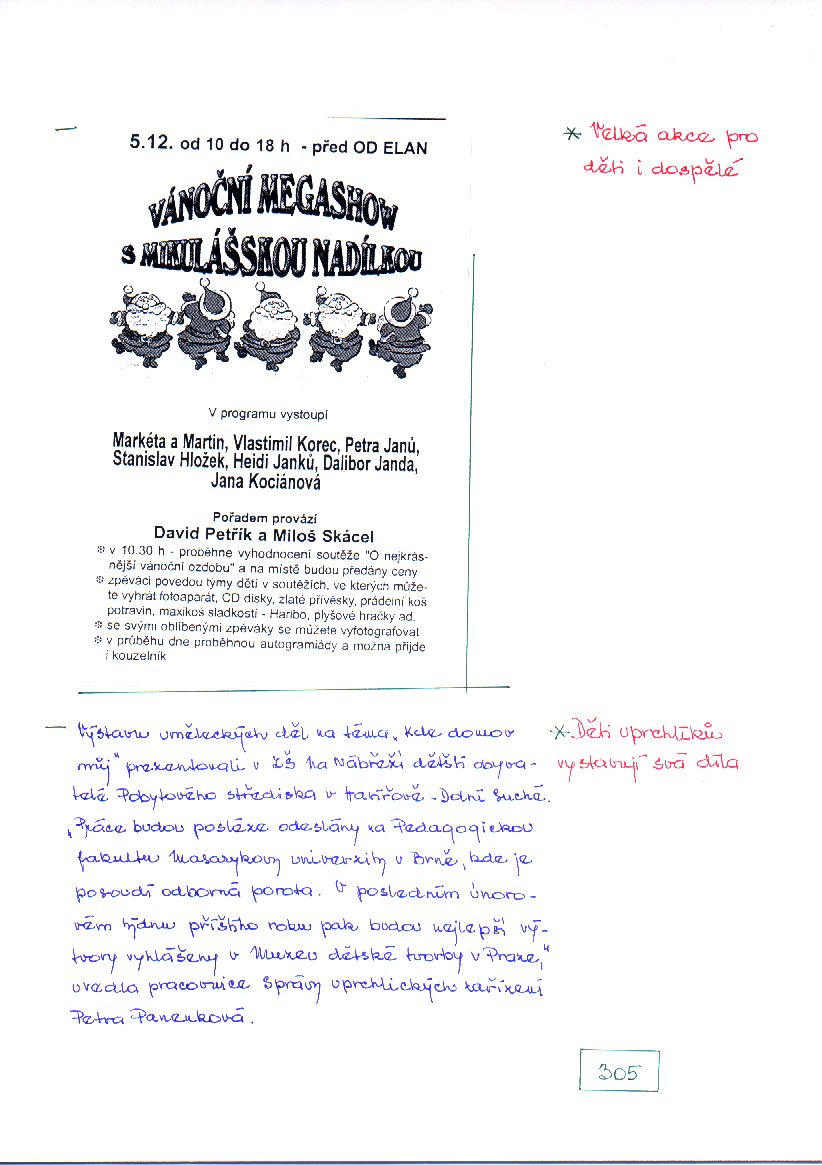 5.12. od 10 do 18 h - před OD ELAN
VÁNOČNÍ MEGASHOW
S MIKULÁŠSKOU NADÍLKOU
V programu vystoupí
Markéta a Martin, Vlastimil Korec, Petra Janů,
Stanislav Hložek, Heidi Janků, Dalibor Janda,
Jana Kociánová
Pořadem provází
David Petřík a Miloš Skácel
* v 10.30 h - proběhne vyhodnocení soutěže "O nejkrás-
nější vánoční ozdobu" a na místě budou předány ceny
* zpěváci povedou týmy dětí v soutěžích, ve kterých může-
te vyhrát fotoaparát, CD disky, zlaté přívěsky, prádelní koš
potravin, maxikoš sladkostí - Haribo, plyšové hračky ad.
* se svými oblíbenými zpěváky se můžete vyfotografovat
* v průběhu dne proběhnou autogramiády a možná přijde
i kouzelník
* Velká akce pro
děti i dospělé
— Výstavu uměleckých děl na téma „Kde domov
můj" prezentovali v ZŠ Na Nábřeží dětští obyva-
telé Pobytového střediska v Havířově - Dolní Suché.
„Práce budou posléze odeslány na Pedagogickou
fakultu Masarykovy univerzity v Brně, kde je
posoudí odborná porota. V posledním únoro-
vém týdnu příštího roku pak budou nejlepší vý-
tvory vyhlášeny v Muzeu dětské tvorby v Praze,"
uvedla pracovnice Správy uprchlických zařízení
Petra Panenková.
* Děti uprchlíků
vystavují svá díla
305